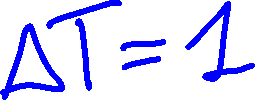 ΔT = 1